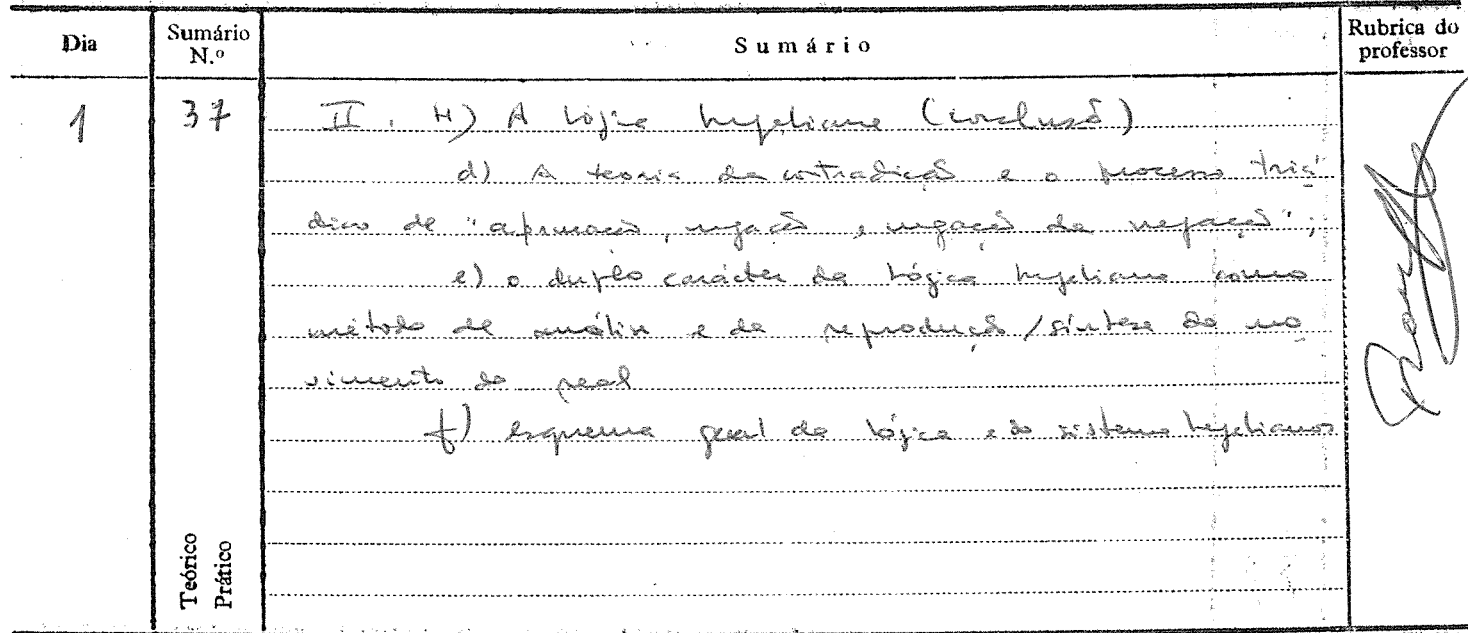 Dia
Sumário N.º
Sumário
Rubrica do professor
1
37
II. H) A lógica hegeliana (conclusão)
d) A teoria da contradição e o processo triá
dico de "afirmação, negação, negação da negação";
e) o duplo carácter da lógica hegeliana como
método de análise e de reprodução/síntese do mo
vimento do real
f) esquema geral da lógica e do sistema hegelianos
Teórico
Prático